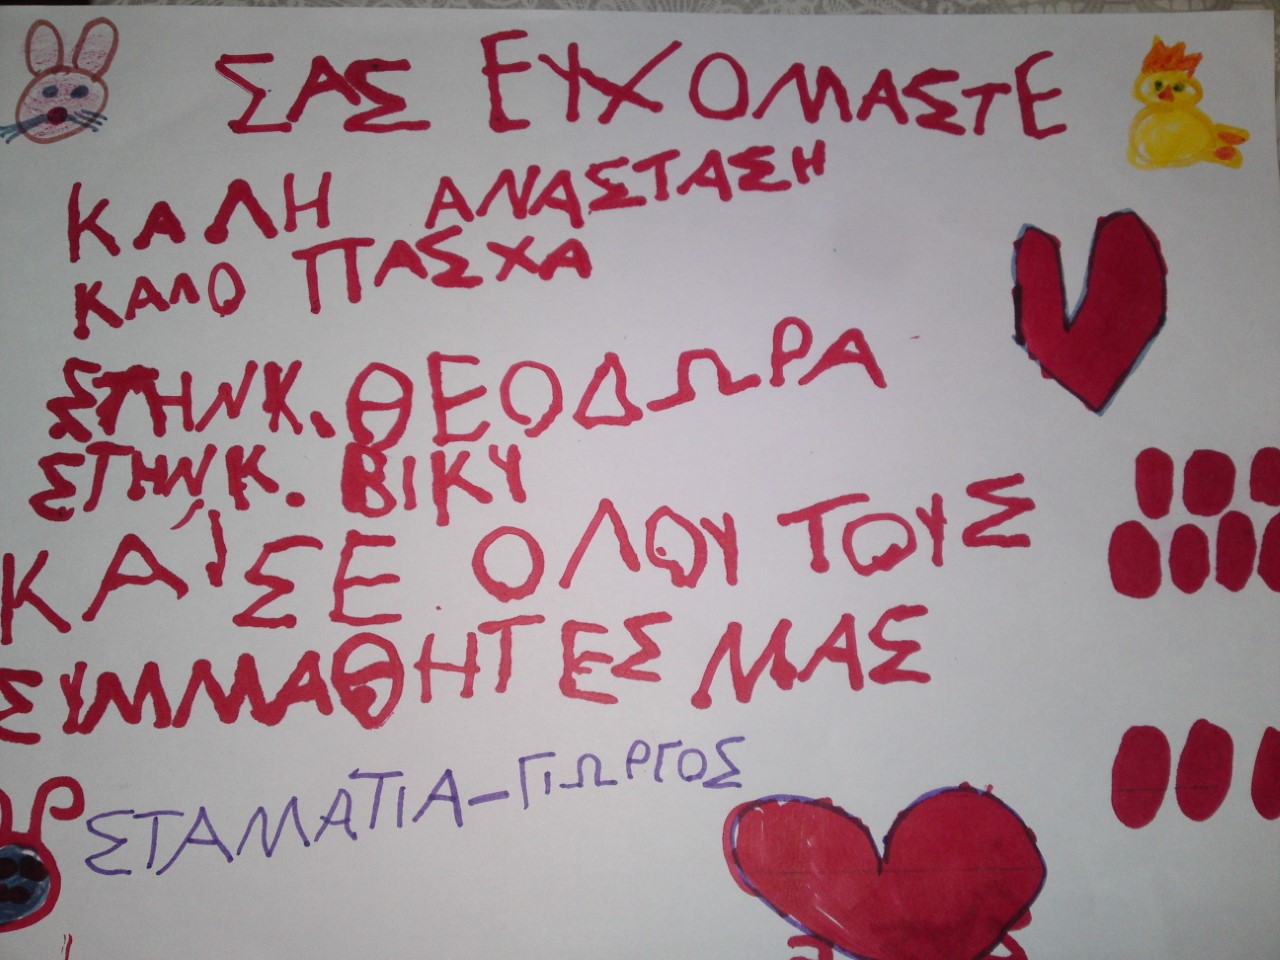 ΣΑΣ ΕΥΧΟΜΑΣΤΕ
ΚΑΛΗ ΑΝΑΣΤΑΣΗ
ΚΑΛΟ ΠΑΣΧΑ
ΣΤΗΝ Κ. ΘΕΟΔΩΡΑ
ΣΤΗΝ Κ. ΒΙΚΥ
ΚΑΊ ΣΕ ΟΛΟΥ ΤΟΥΣ
ΣΥΜΜΑΘΗΤΕΣ ΜΑΣ
ΣΤΑΜΑΤΙΑ-ΓΙΩΡΓΟΣ